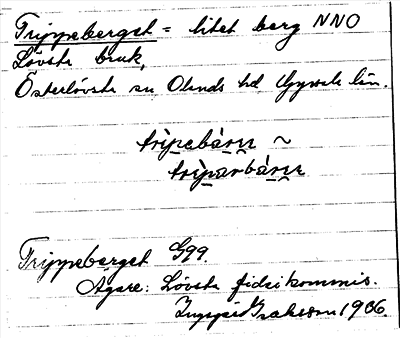 Trippeberget = litet berg NNO
Lövsta bruk,
Österlövsta sn Olands hd, Gyvele län.
tripebáru ~
triparbáru
Trippeberget G99
Ägare: Lövsta fideikommis.
Isaksson 1906.